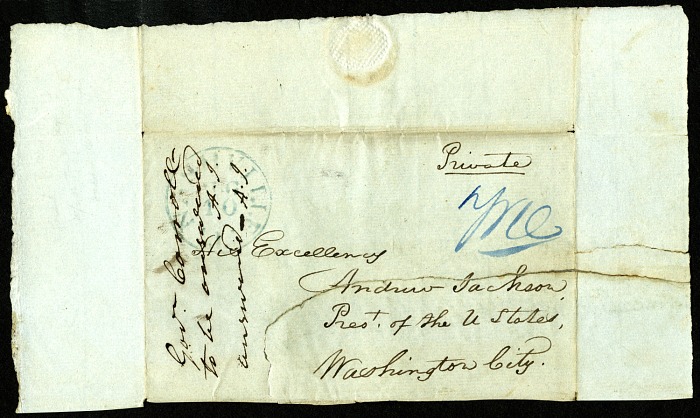 Private
Free
His Excellency
Andrew Jackson,
Prest. of the U States,
Washington City.
Govr. Carroll
to be answered
A.J.
answered - A.J.